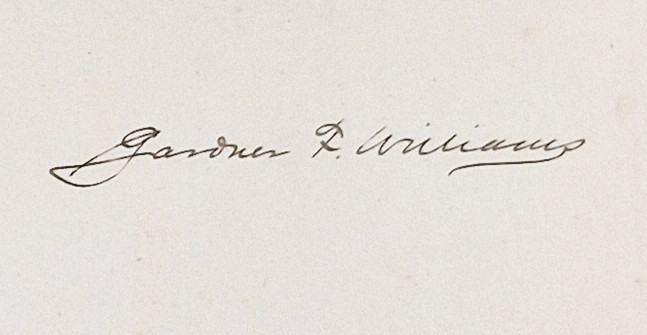 Gardner F. Williams